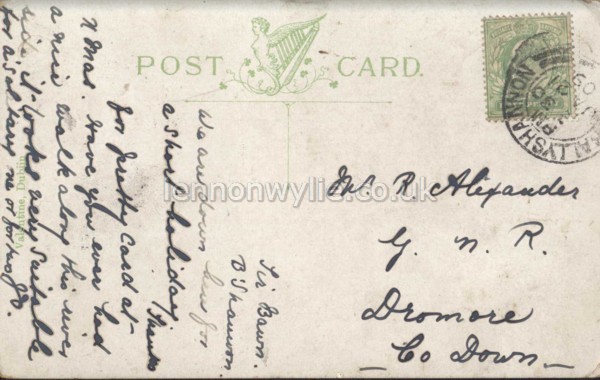 POST CARD.
Valentine, Dublin
BALLYSHANNON
Tir Bawn.
B'Shannon.
We are down here for
a short holiday
Thanks
for pretty card at
Xmas. Have you ever had
a nice walk along this river
side it looks very suitable
for a solitary one or for two
Mr. R. Alexander
G. N. R.
Dromore
Co Down
lennonwylie.co.uk